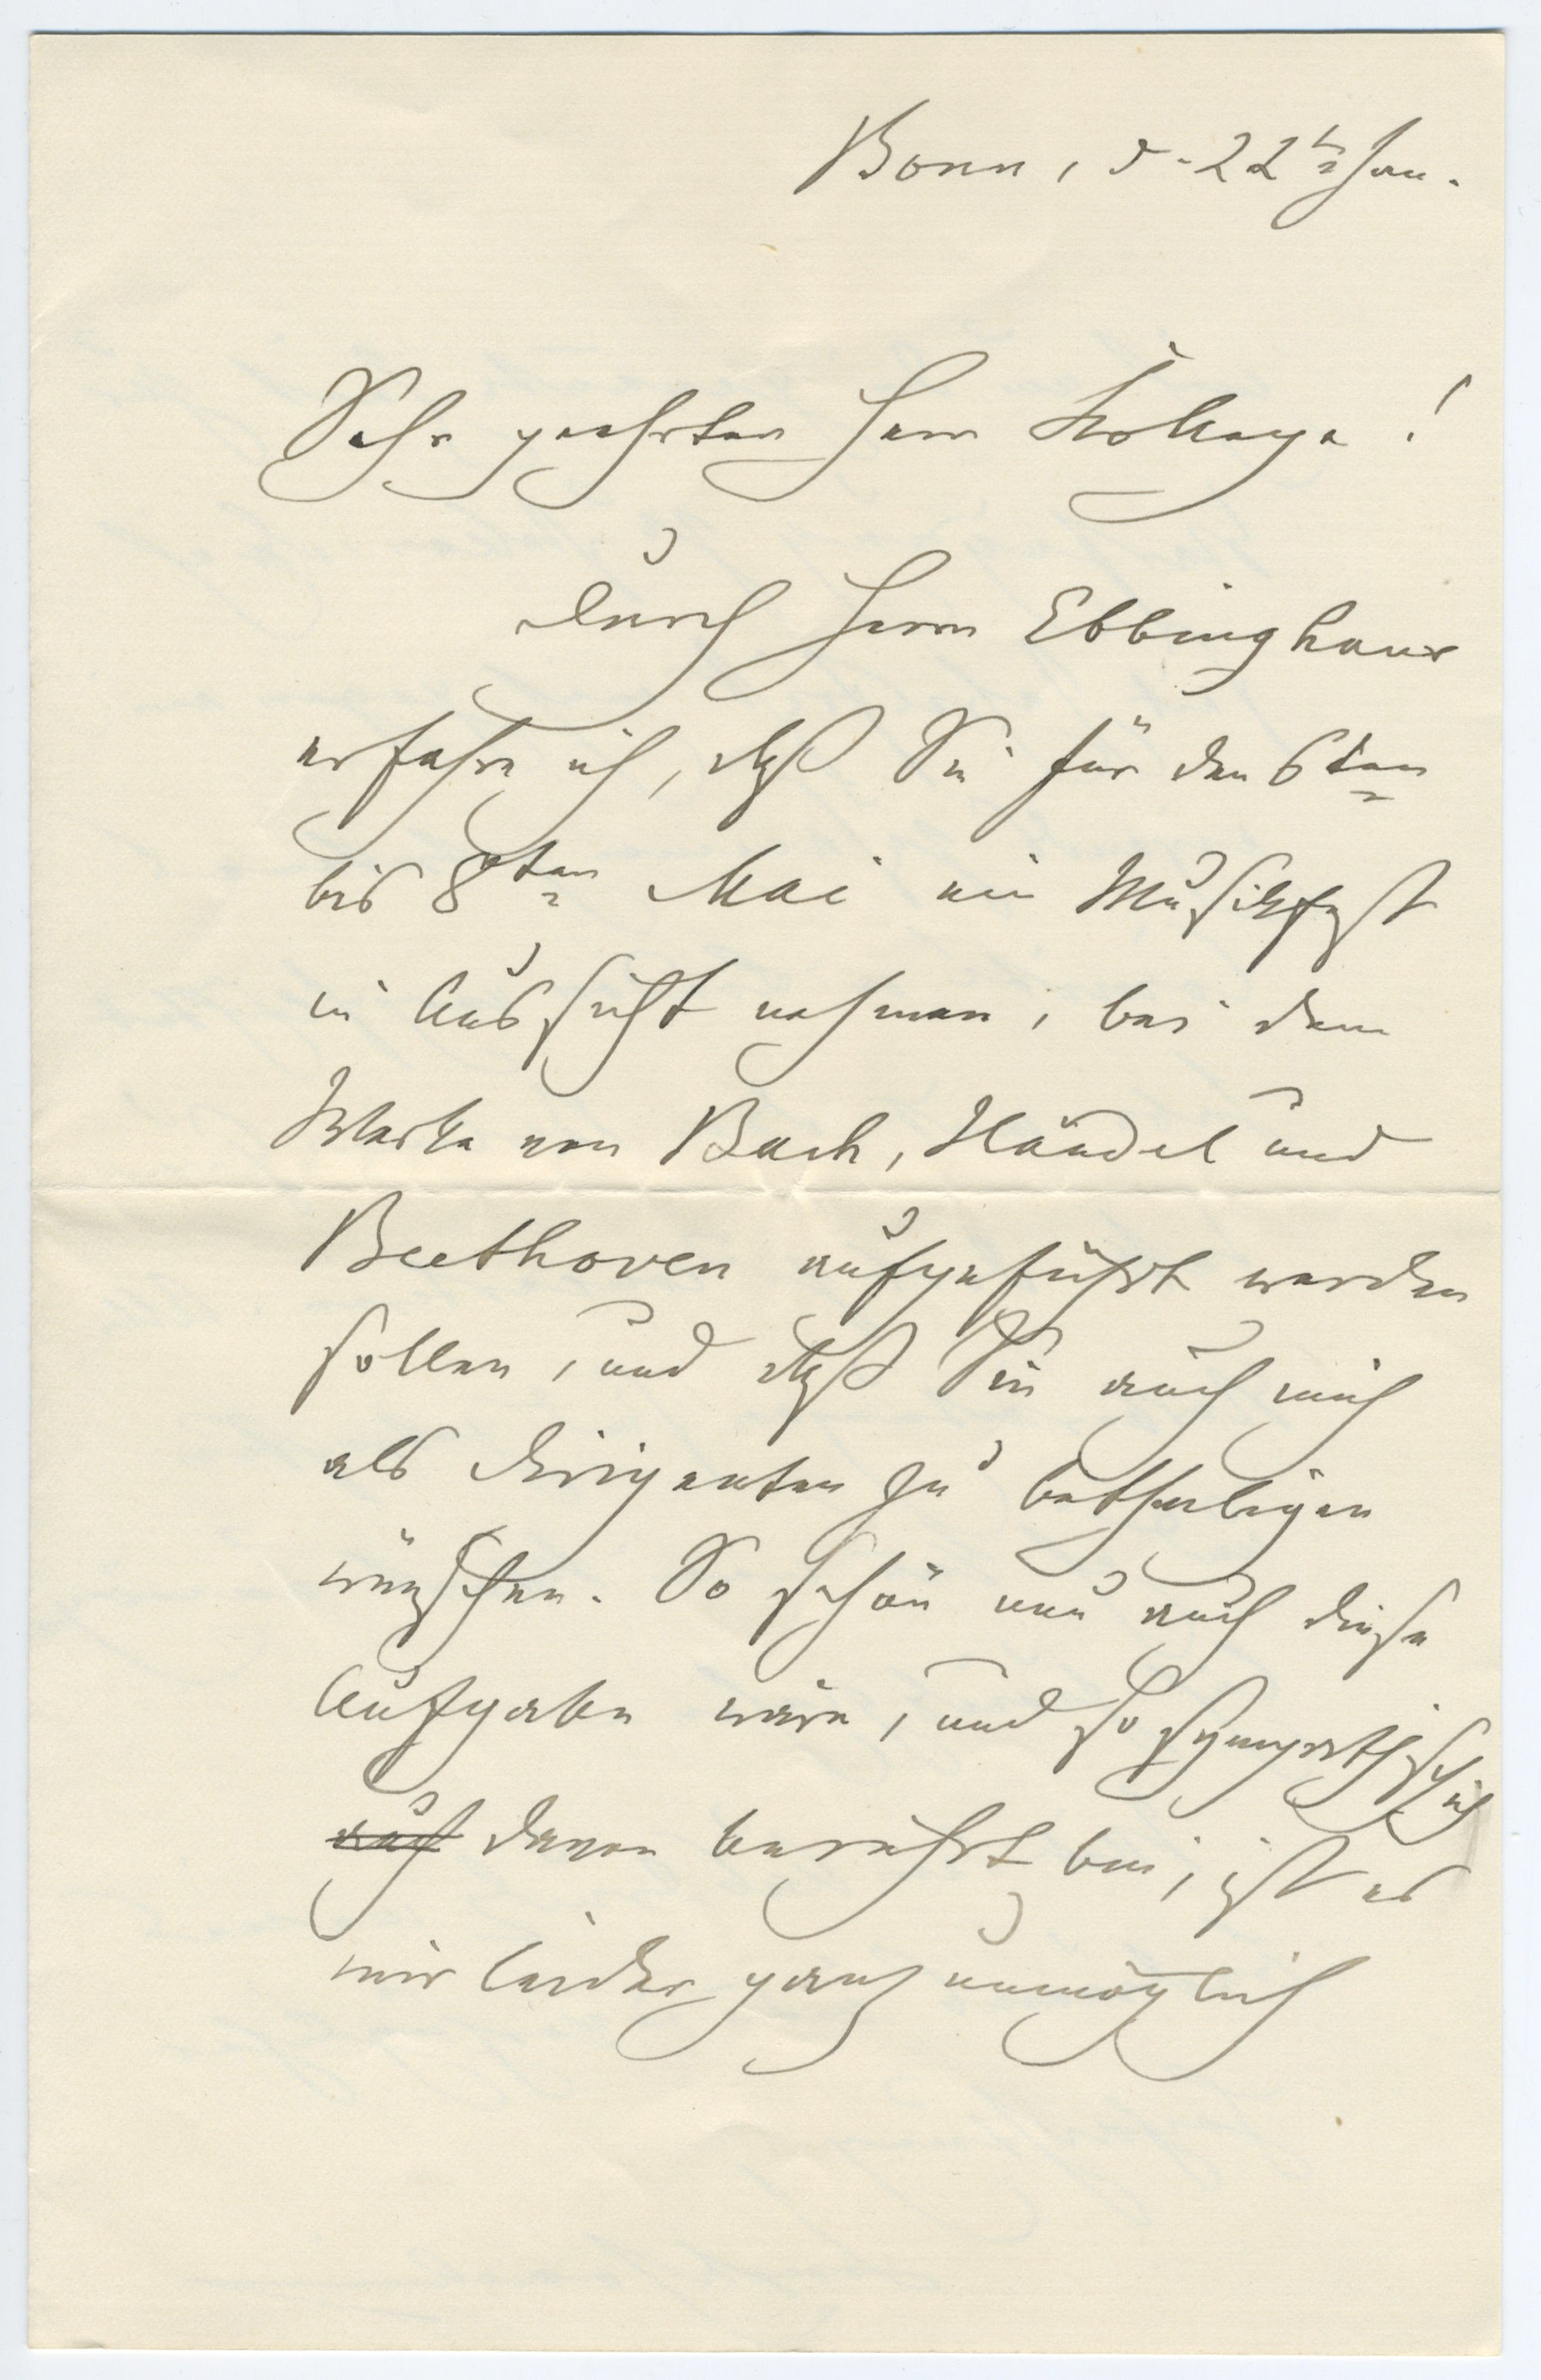 Bonn, d. 22ten Jan.
Sehr geehrter Herr Kollege!
Durch Herrn Ebbinghaus
erfahre ich, daß Sie für den 6ten
bis 8ten Mai ein Musikfest
in Aussicht nehmen, bei dem
Werke von Bach, Händel und
Beethoven aufgeführt werden
sollen, und daß Sie auch mich
als Dirigenten zu betheiligen
wünschen. So schön nun auch diese
Aufgabe wäre, und so sympathisch ich
auch davon berührt bin, ist es
mir leider ganz unmöglich